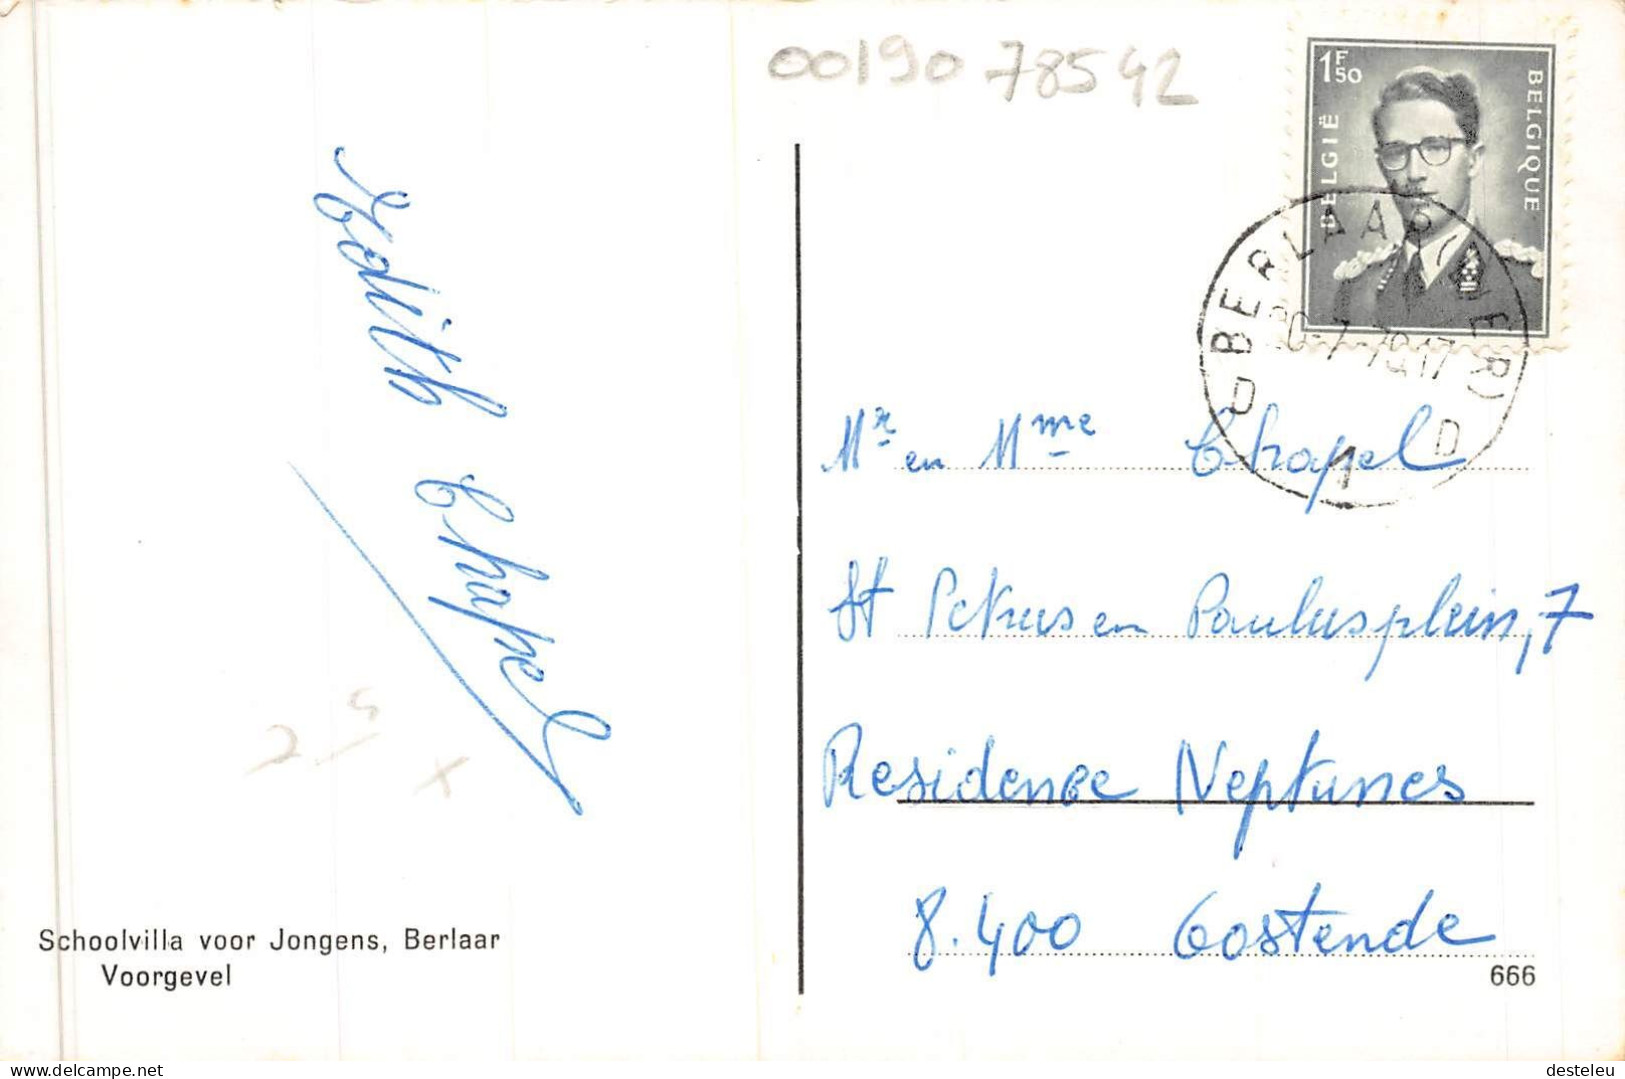 00190 78542
1F50
BELGIË
BELGIQUE
BERLAAR (LIER)
D 1 D
Edith Chapel
Mr en Mme Chapel
St Petrus en Paulusplein, 7
Residence Neptunes
8.400 Oostende
Schoolvilla voor Jongens, Berlaar
Voorgevel
666
delcampe.net
desteleu